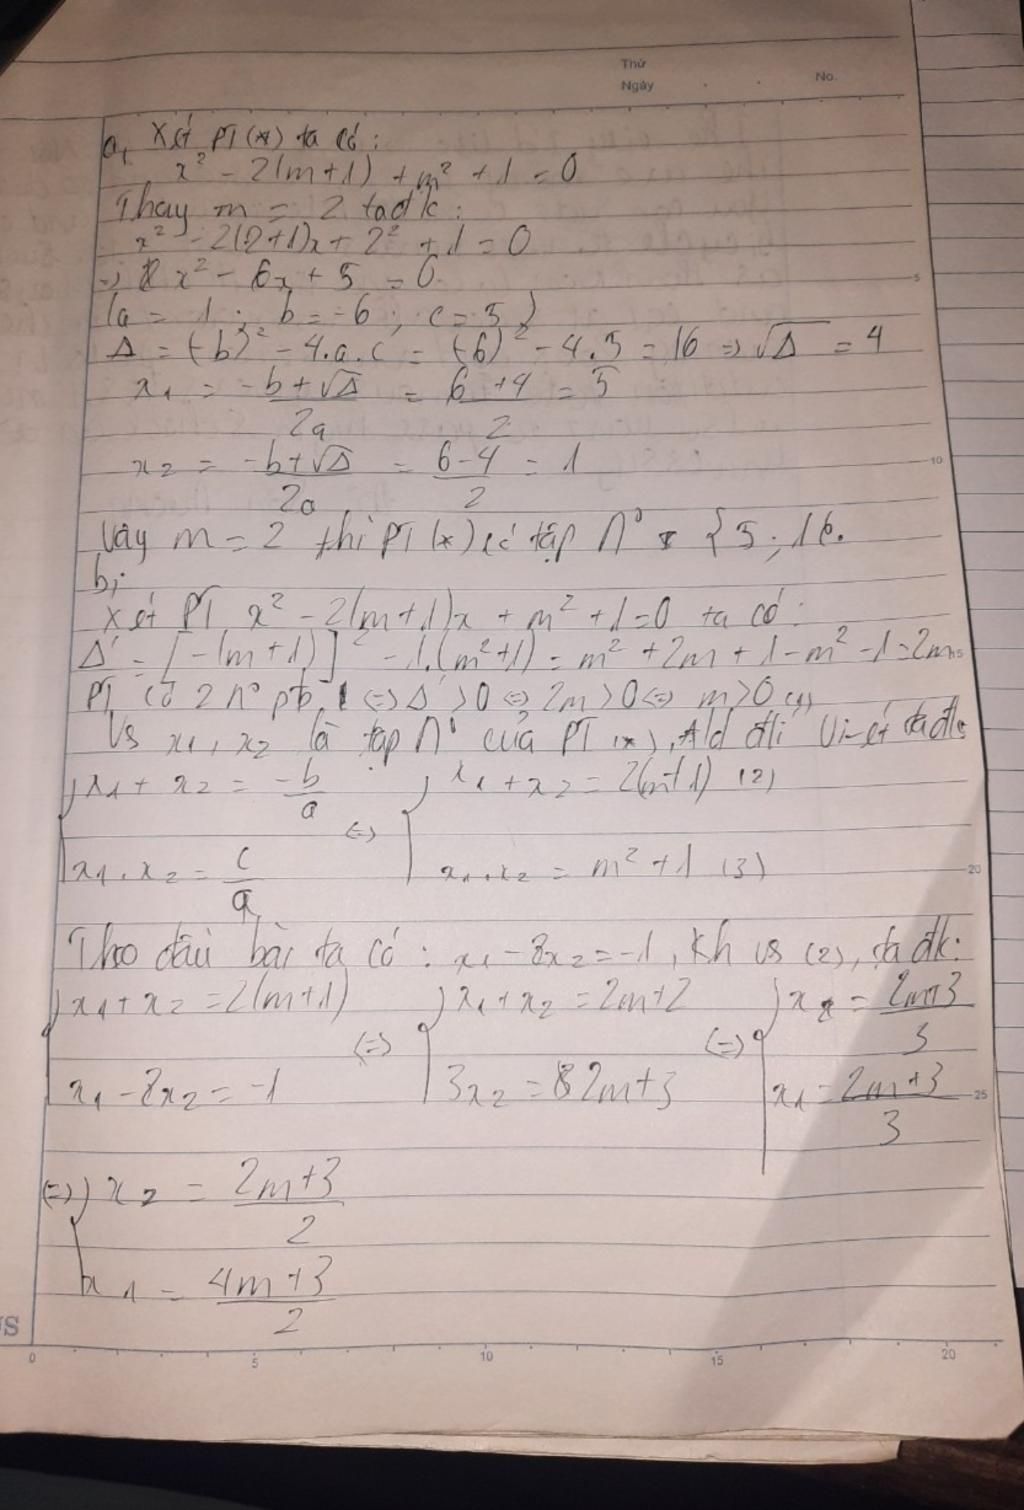 Thứ
Ngày
No.
a, Xét PT(*) ta có:
x² - 2(m+1) + m² + 1 = 0
Thay m = 2 ta đk:
x² - 2(2+1)x + 2² + 1 = 0
=> x² - 6x + 5 = 0
(a = 1; b = -6; c = 5)
Δ = (-b)² - 4.a.c = (-6)² - 4.5 = 16 => √Δ = 4
x₁ = (-b+√Δ)/2a = (6+4)/2 = 5
x₂ = (-b+√Δ)/2a = (6-4)/2 = 1
Vậy m = 2 thì PT(*) có tập n⁰ {5; 1}.
b;
Xét PT x² - 2(m+1)x + m² + 1 = 0 ta có:
Δ' = [-(m+1)]² - 1.(m²+1) = m² + 2m + 1 - m² - 1 = 2m
PT có 2 n⁰ pb <=> Δ' > 0 <=> 2m > 0 <=> m > 0 (1)
Vs x₁, x₂ là tập n⁰ của PT(*), Ald đlí Vi-ét ta đk
{ x₁ + x₂ = -b/a <=> { x₁ + x₂ = 2(m+1) (2)
x₁ . x₂ = c/a x₁ . x₂ = m² + 1 (3)
Theo đầu bài ta có: x₁ - 2x₂ = -1, kh vs (2), ta đk:
{ x₁ + x₂ = 2(m+1) <=> { x₁ + x₂ = 2m+2 <=> { x₂ = (2m+3)/3
x₁ - 2x₂ = -1 3x₂ = 2m+3 x₁ = (2m+3)/3
<=> { x₂ = (2m+3)/2
x₁ = (4m+3)/2
0 5 10 15 20
5
10
15
20
25